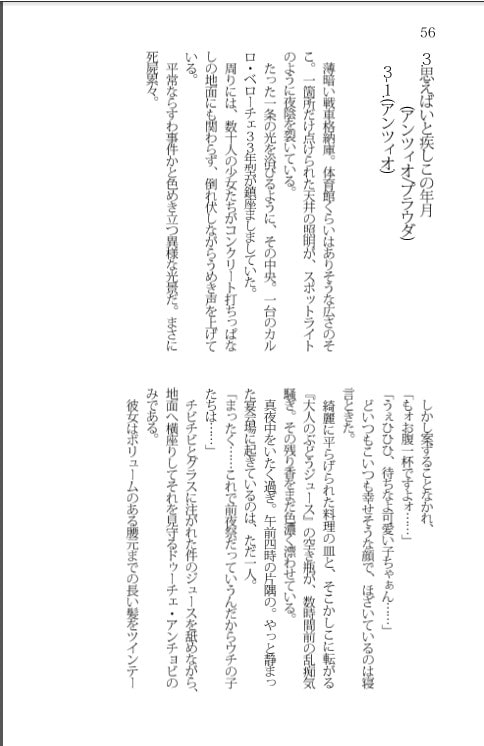 56
3思えばいと疾しこの年月
(アンツィオ/プラウダ)
3-1(アンツィオ)
薄暗い戦車格納庫。体育館くらいはありそうな広さのそ
こ。一箇所だけ点けられた天井の照明が、スポットライト
のように夜陰を裂いている。
たった一条の光を浴びるように、その中央。一台のカル
ロ・ベローチェ33年型が鎮座ましましていた。
周りには、数十人の少女たちがコンクリート打ちっぱな
しの地面にも関わらず、倒れ伏しながらうめき声を上げて
いる。
平常ならすわ事件かと色めき立つ異様な光景だ。まさに
死屍累々。
しかし案ずることなかれ、
「もォお腹一杯ですよォ……」
「うぇひひひ、待ちなよ可愛い子ちゃぁん……」
どいつもこいつも幸せそうな顔で、ほざいているのは寝
言ときた。
綺麗に平らげられた料理の皿と、そこかしこに転がる
『大人のぶどうジュース』の空き瓶が、数時間前の乱痴気
騒ぎ。その残り香をまだ色濃く漂わせている。
真夜中をいたく過ぎ。午前四時の片隅の。やっと静まっ
た宴会場に起きているのは、ただ一人。
「まったく……これで前夜祭だっていうんだからウチの子
たちは……」
チビチビとグラスに注がれた件のジュースを舐めながら、
地面へ横座りしてそれを見守るドゥーチェ・アンチョビの
みである。
彼女はボリュームのある腰元までの長い髪をツインテー